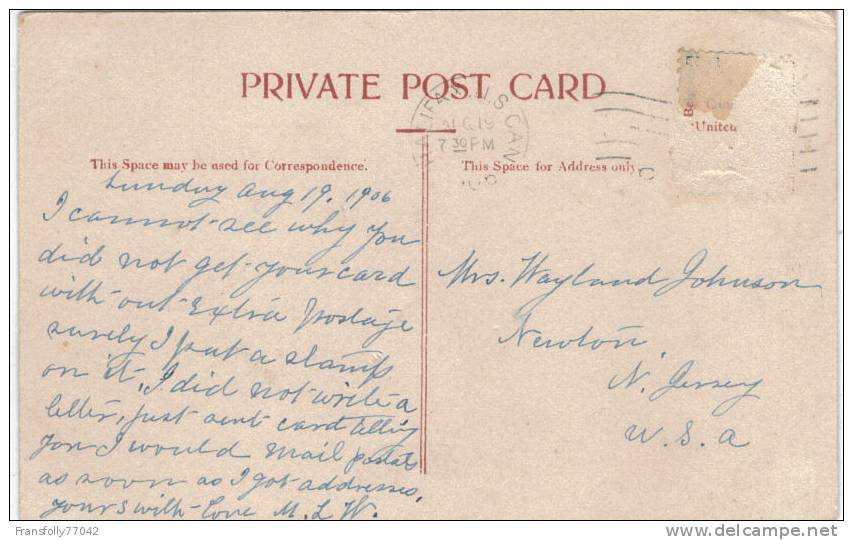 PRIVATE POST CARD
HALIFAX N.S. CAN
AUG 19
7 30 PM
Be
United
This Space may be used for Correspondence.
This Space for Address only
Sunday Aug 19. 1906
I cannot see why you
did not get your card
with out Extra Postage
surely I put a stamp
on it, I did not write a
letter, just sent card telling
you I would mail postals
as soon as I got addresses.
yours with love M. L. W.
Mrs. Wayland Johnson
Newton
N. Jersey
U. S. A
Fransfolly77042
www.delcampe.net